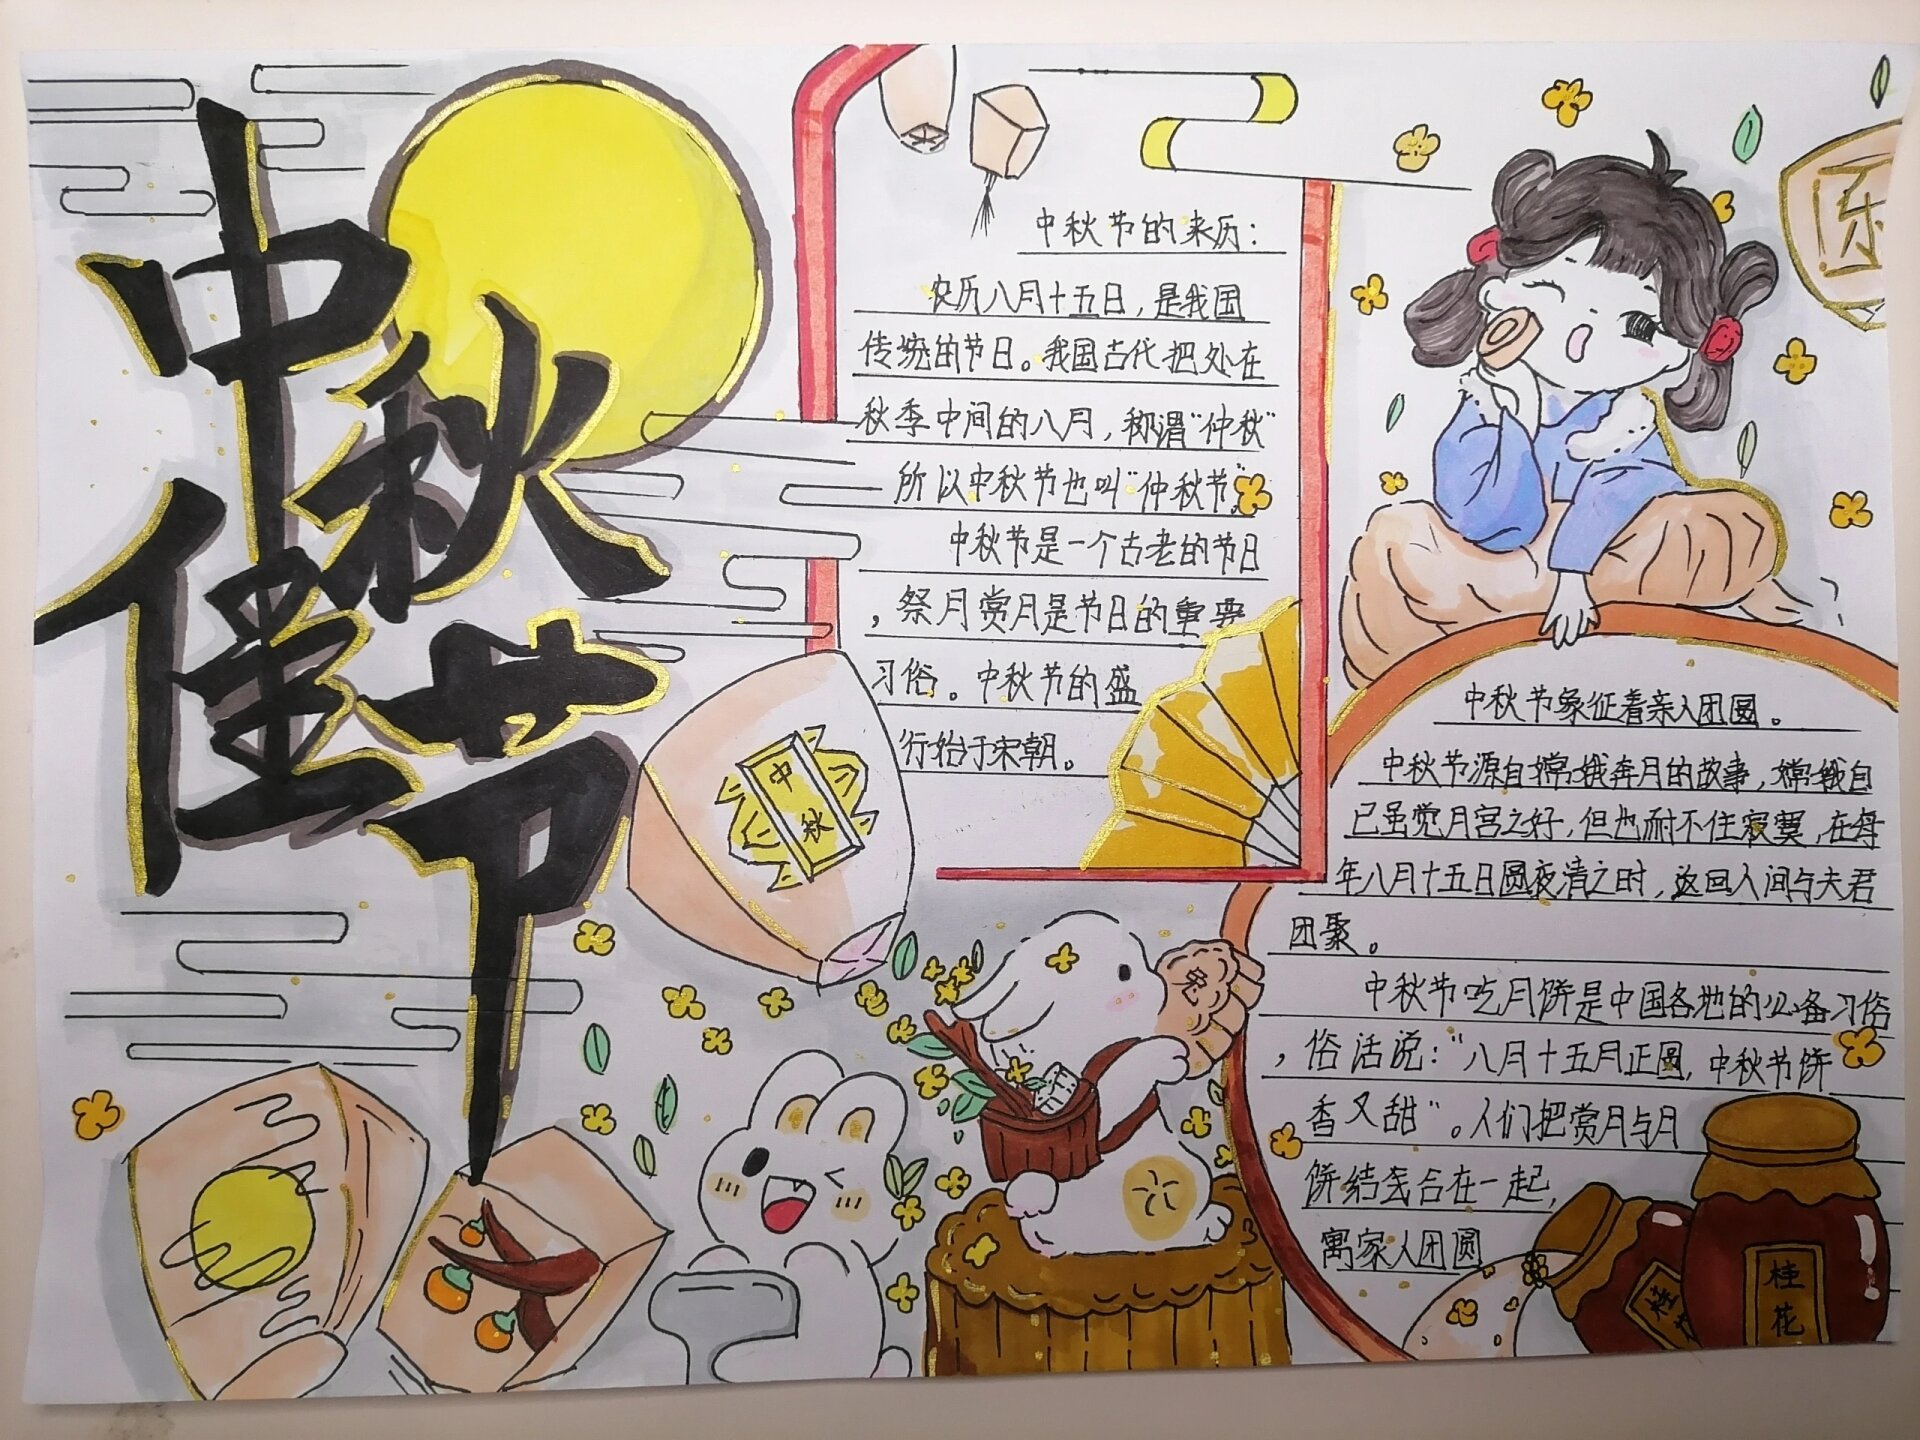 中秋佳节
中秋节的来历：
农历八月十五日，是我国
传统的节日。我国古代把处在
秋季中间的八月，称谓“仲秋”
所以中秋节也叫“仲秋节”。
中秋节是一个古老的节日
，祭月赏月是节日的重要
习俗。中秋节的盛
行始于宋朝。
中秋
中秋节象征着亲人团圆。
中秋节源自嫦娥奔月的故事，嫦娥自
已虽觉月宫之好，但也耐不住寂寞，在每
年八月十五日圆夜清之时，返回人间与夫君
团聚。
中秋节吃月饼是中国各地的必备习俗
，俗话说：“八月十五月正圆，中秋节饼
香又甜”。人们把赏月与月
饼结合在一起，
寓家人团圆
乐
桂花
桂花